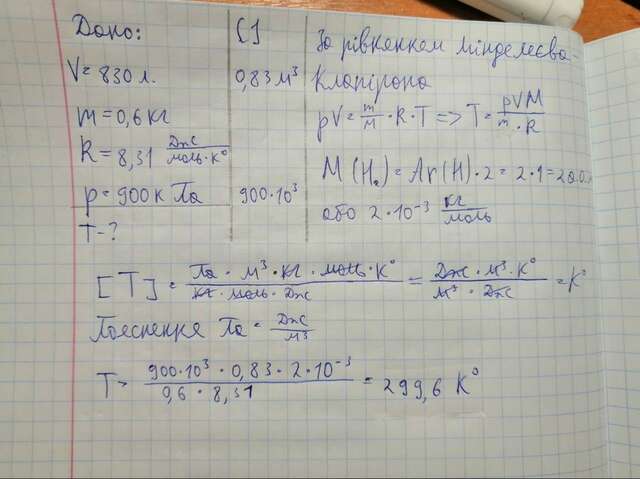 Дано:
V = 830 л.
m = 0,6 кг
R = 8,31 Дж/моль·K°
p = 900 к Па
T - ?
СІ
0,83 м³
900·10³
За рівнянням Мінделєєва-
Клапірона
pV = m/M · R · T => T = pVM/m · R
M (H₂) = Ar(H) · 2 = 2 · 1 = 2
або 2·10⁻³ кг/моль
[T] = Па · м³ · кг · моль · K°/кг · моль · Дж = Дж · м³ · K°/м³ · Дж = K°
Пояснення Па = Дж/м³
T = 900·10³ · 0,83 · 2·10⁻³/0,6 · 8,31 = 299,6 K°